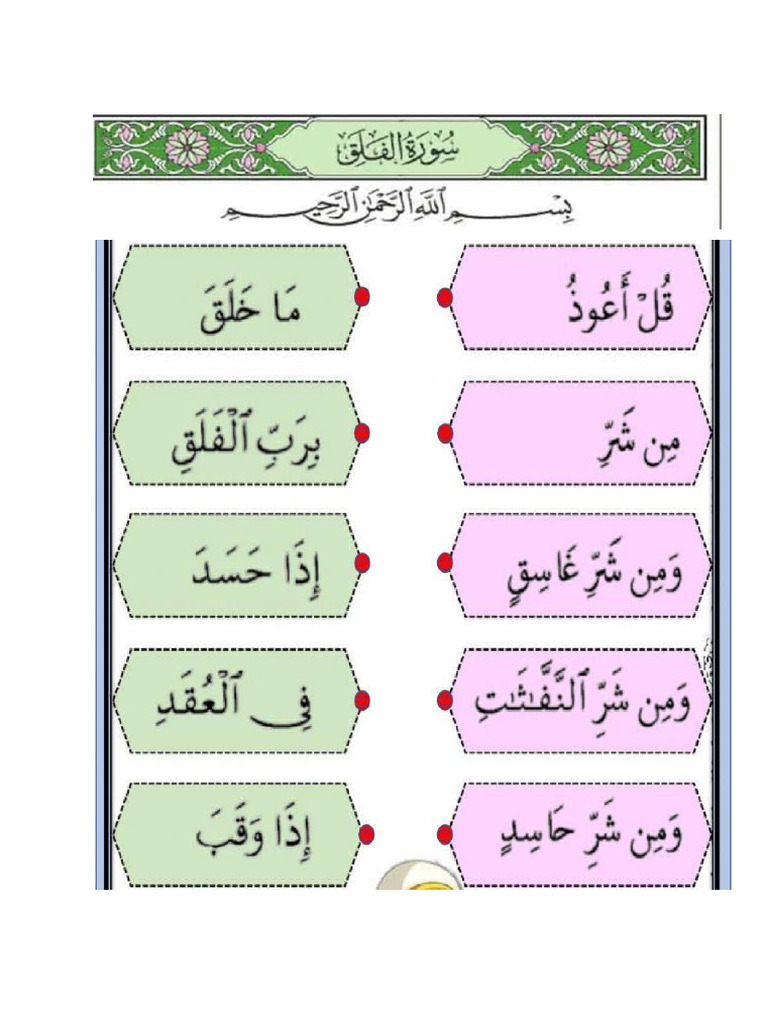 سُورَةُ الفَلَقِ
بِسْمِ ٱللَّهِ ٱلرَّحْمَٰنِ ٱلرَّحِيمِ
قُلْ أَعُوذُ
مَا خَلَقَ
مِن شَرِّ
بِرَبِّ ٱلْفَلَقِ
وَمِن شَرِّ غَاسِقٍ
إِذَا حَسَدَ
وَمِن شَرِّ ٱلنَّفَّٰثَٰتِ
فِى ٱلْعُقَدِ
وَمِن شَرِّ حَاسِدٍ
إِذَا وَقَبَ